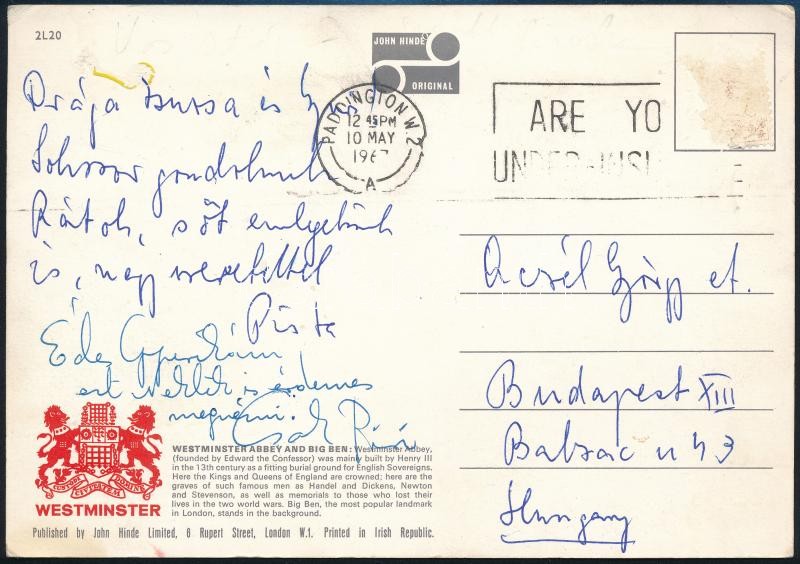 2L20
JOHN HINDE
ORIGINAL
PADDINGTON W.2
12 45 PM
10 MAY
196
A
ARE YO
UNDER-INSU E
Drága Zsuzsa és
Sokszor gondolunk
Rátok, sőt emlegetünk
is, nagy szeretettel
Pista
Édes
ezt nektek is érdemes
megnézni. Csók
Aczél György et.
Budapest XIII
Balzac u 43
Hungary
WESTMINSTER
WESTMINSTER ABBEY AND BIG BEN: Westminster Abbey,
(founded by Edward the Confessor) was mainly built by Henry III
in the 13th century as a fitting burial ground for English Sovereigns.
Here the Kings and Queens of England are crowned; here are the
graves of such famous men as Handel and Dickens, Newton
and Stevenson, as well as memorials to those who lost their
lives in the two world wars. Big Ben, the most popular landmark
in London, stands in the background.
Published by John Hinde Limited, 6 Rupert Street, London W.1. Printed in Irish Republic.